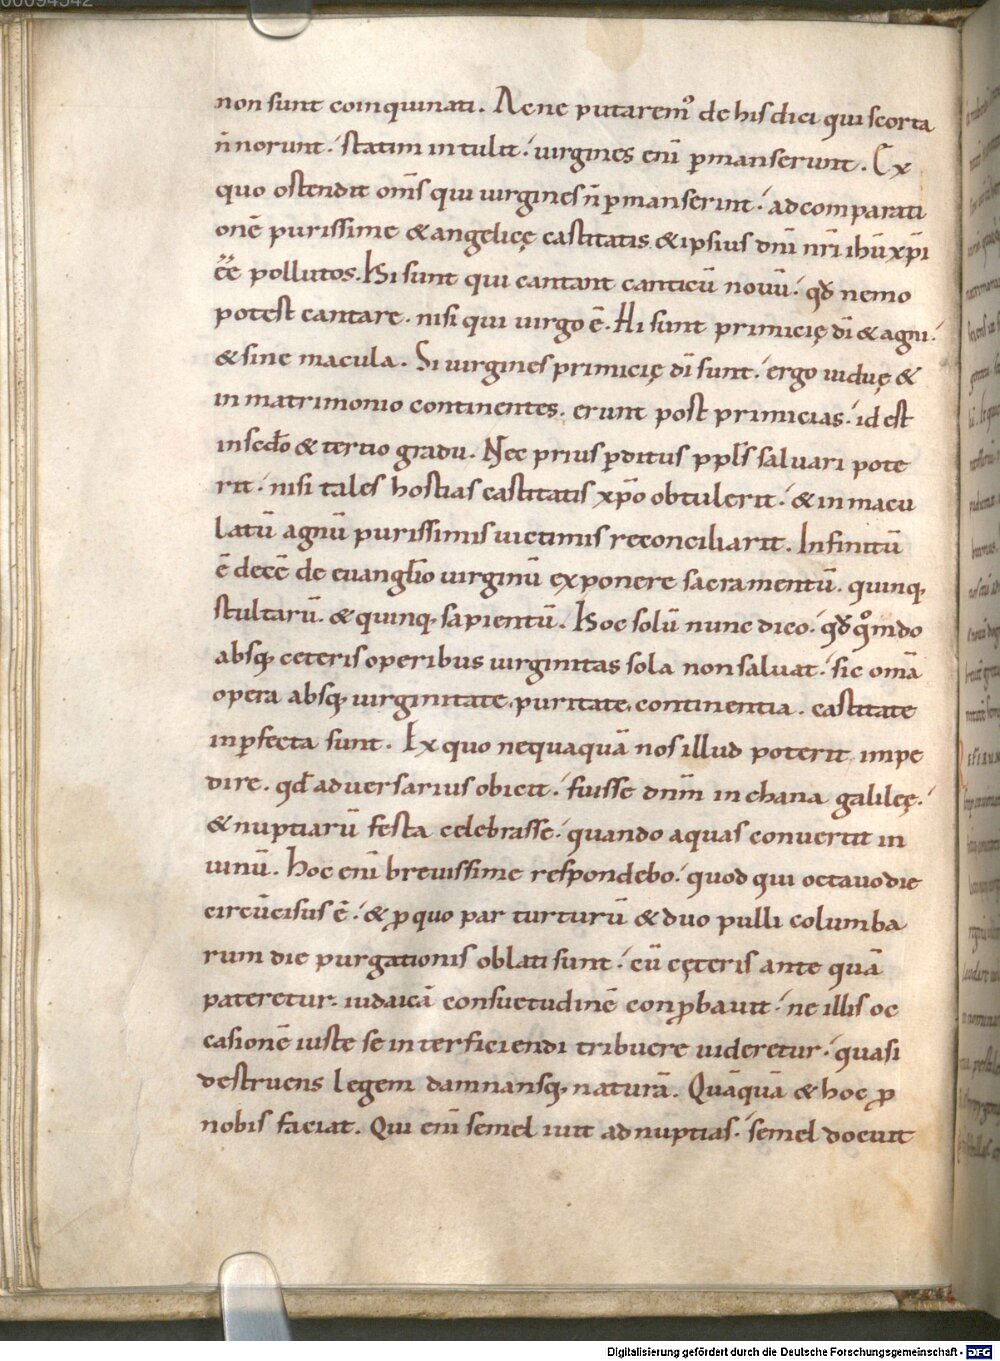 non sunt coinquinati. Ac ne putarem᷒ de his dici qui scorta
n̄ norunt. statim intulit. uirgines eni̅ p̱manserunt. Ex
quo ostendit om̅s qui uirgines n̄ p̱manserint. ad comparati
onē purissime & angelicę castitatis & ipsius dn̄i nr̄i ih̅u xp̅i
ēē pollutos. Hi sunt qui cantant canticū nouū. qd̄ nemo
potest cantare. nisi qui uirgo ē. Hi sunt primicię dī & agni.
& sine macula. Si uirgines primicię dī sunt. ergo uiduę &
in matrimonio continentes. erunt post primicias. id est
in secd̄o & tertio gradu. Nec prius p̱ditus ppl̅s saluari pote
rit. nisi tales hostias castitatis xp̅o obtulerit. & inmacu
latū agnū purissimis uictimis reconciliarit. Infinitū
ē decē de euangl̅io uirginū exponere sacramentū. quinq;
stultarū. & quinq; sapientū. Hoc solū nunc dico. qd̄ qͦmdo
absq; ceteris operibus uirginitas sola non saluat. sic om̅a
opera absq; uirginitate, puritate, continentia. castitate
inp̱fecta sunt. Ex quo nequaquā nos illud poterit impe
dire. qd̄ aduersarius obicit. fuisse dn̅m in chana galileę.
& nuptiarū festa celebrasse. quando aquas conuertit in
uinū. hoc eni̅ breuissime respondebo. quod qui octauo die
circūcisus ē. & ꝓ quo par turturū & duo pulli columba
rum die purgationis oblati sunt. cū cęteris ante quā
pateretur. iudaicā consuetudinē conp̱bauit. ne illis oc
casionē iuste se interficiendi tribuere uideretur. quasi
destruens legem damnansq; naturā. Quāquā & hoc ꝓ
nobis faciat. Qui eni̅ semel iuit ad nuptias. semel docuit
Digitalisierung gefördert durch die Deutsche Forschungsgemeinschaft - DFG